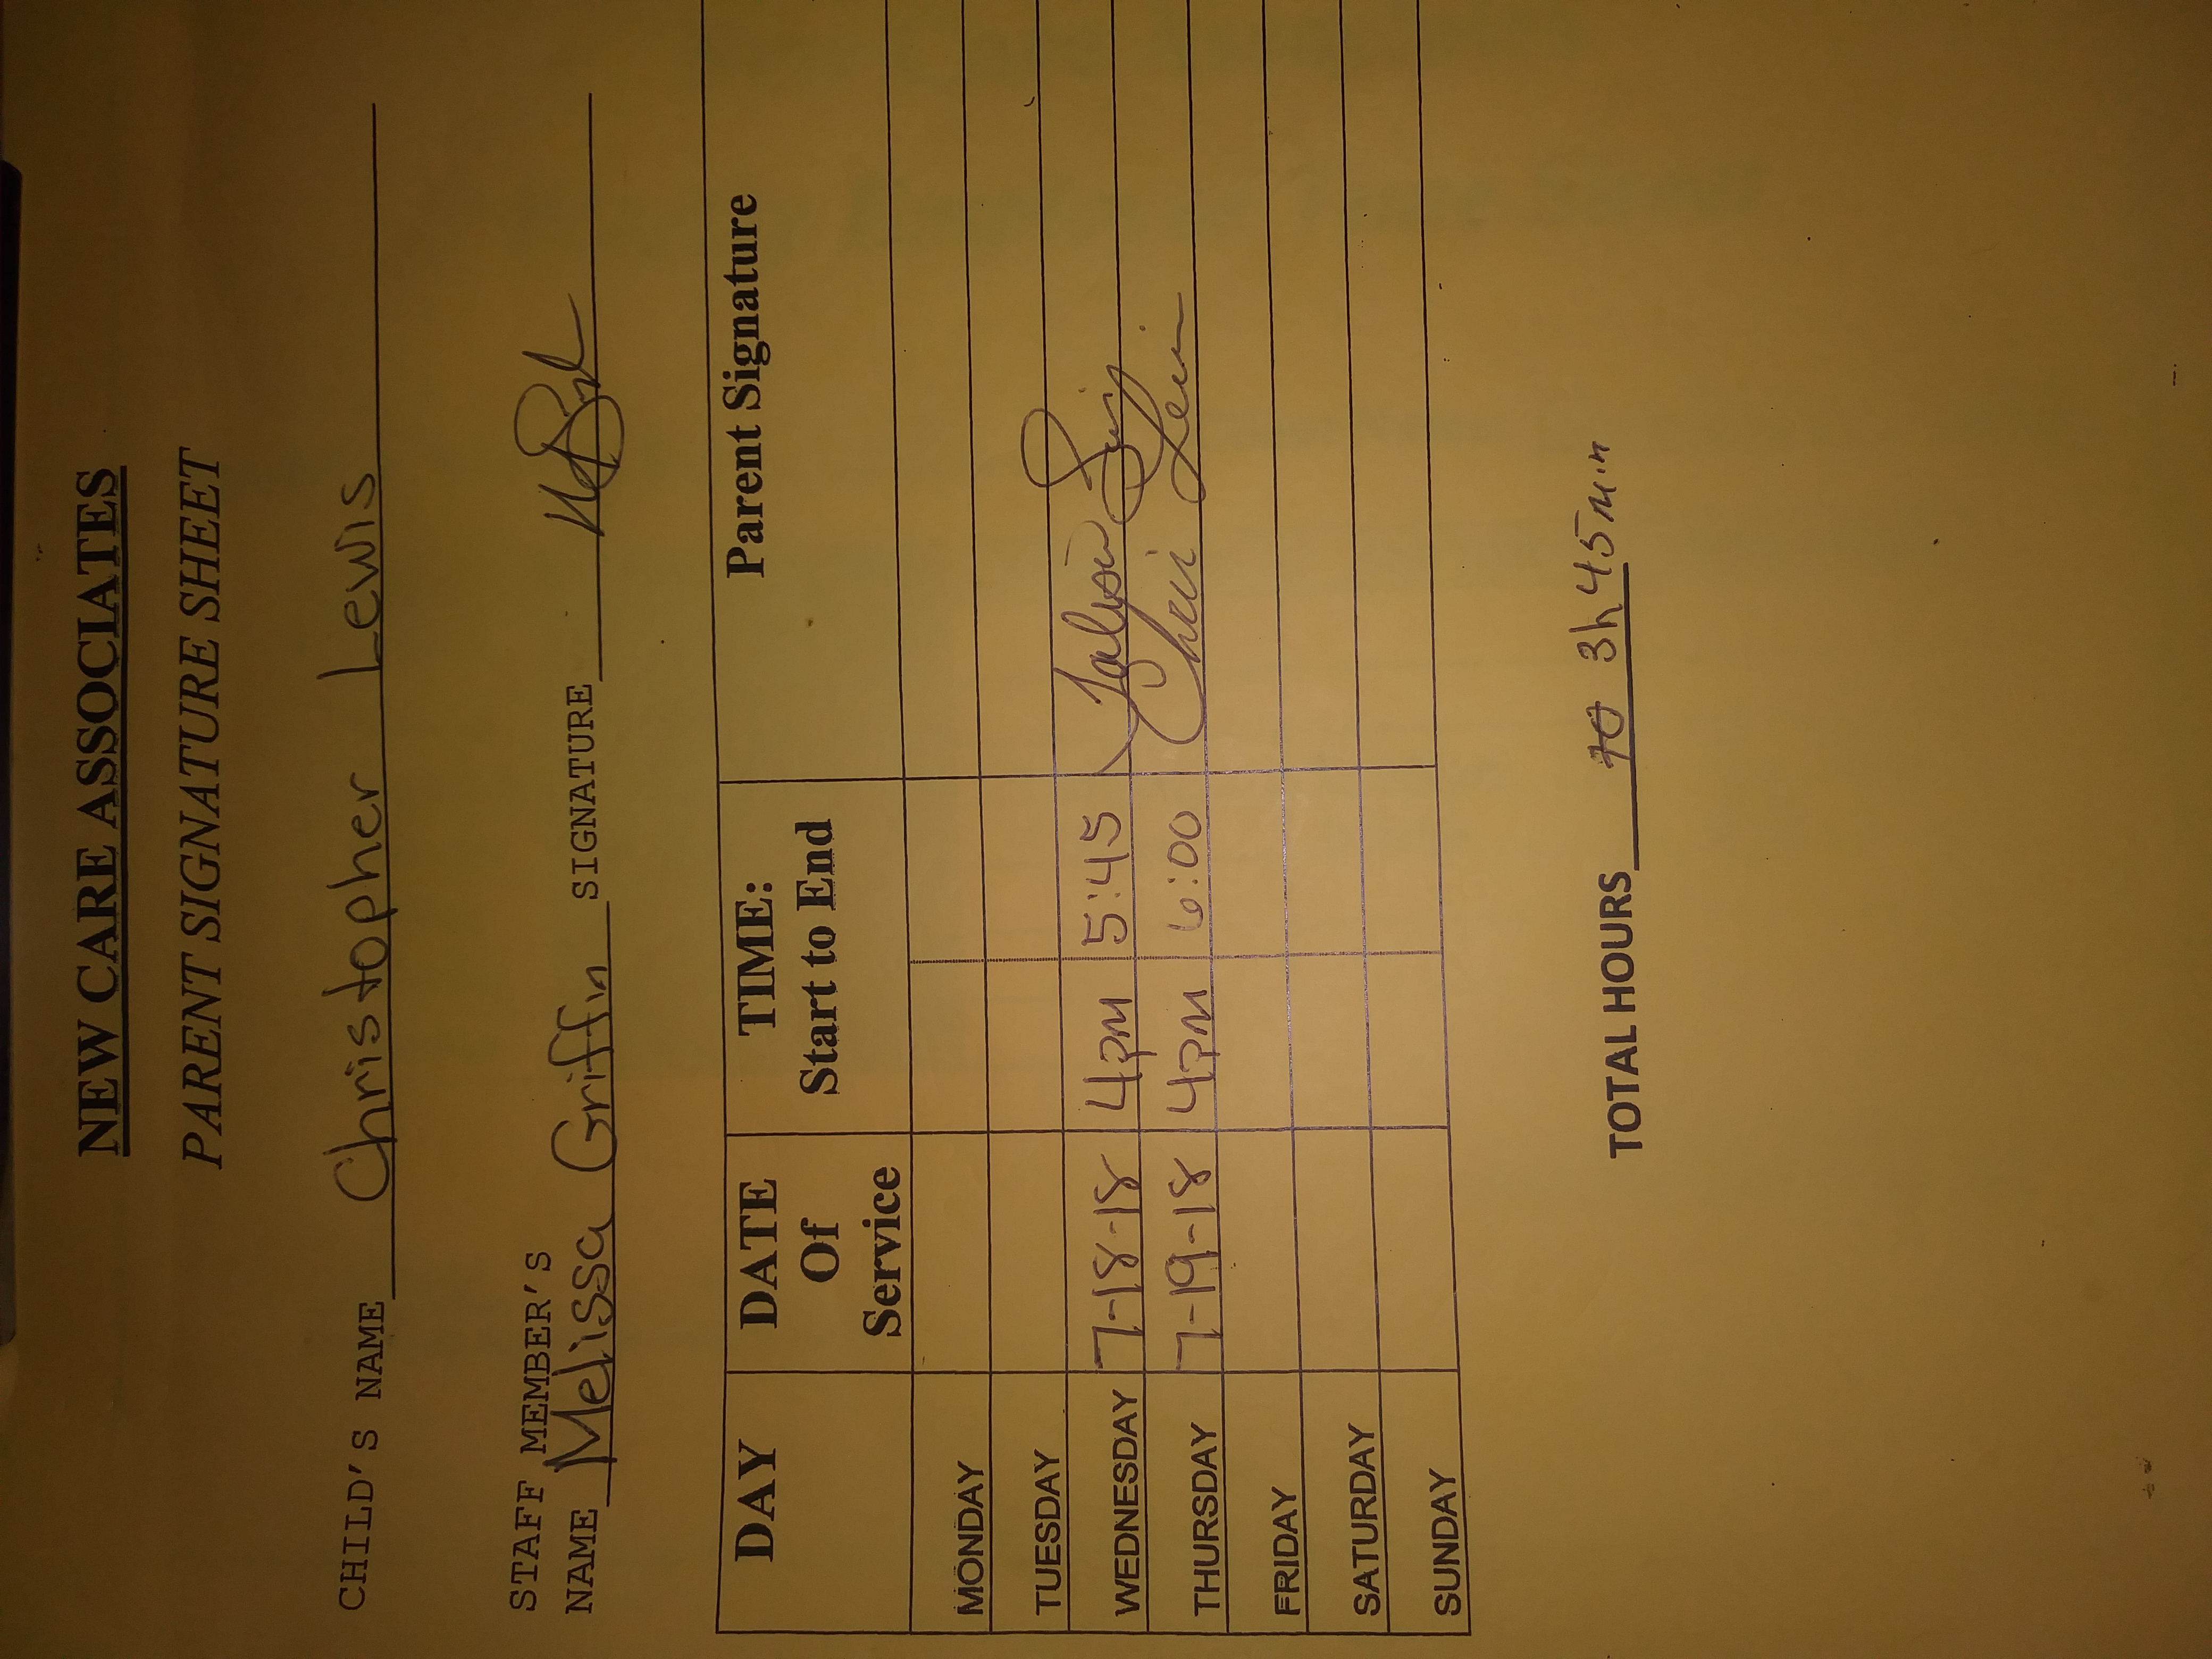 NEW CARE ASSOCIATES
PARENT SIGNATURE SHEET
CHILD'S NAME Christopher Lewis
STAFF MEMBER'S
NAME Melissa Griffin SIGNATURE
DAY DATE Of Service TIME: Start to End Parent Signature
MONDAY
TUESDAY
WEDNESDAY 7-18-18 4pm 5:45
THURSDAY 7-19-18 4pm 6:00 Chris Lewis
FRIDAY
SATURDAY
SUNDAY
TOTAL HOURS 3h 45min